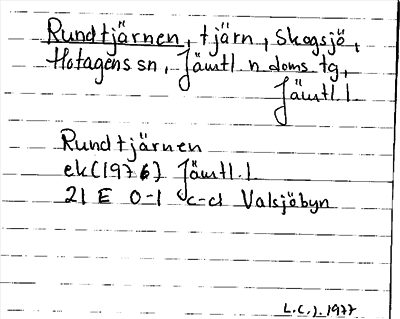 Rundtjärnen, tjärn, Skogsjö,
Hotagens sn, Jämtl n doms tg,
Jämtl. l
Rundtjärnen
ek (1976) Jämtl. l
21 E 0-1 c-d Valsjöbyn
L.C.J. 1977